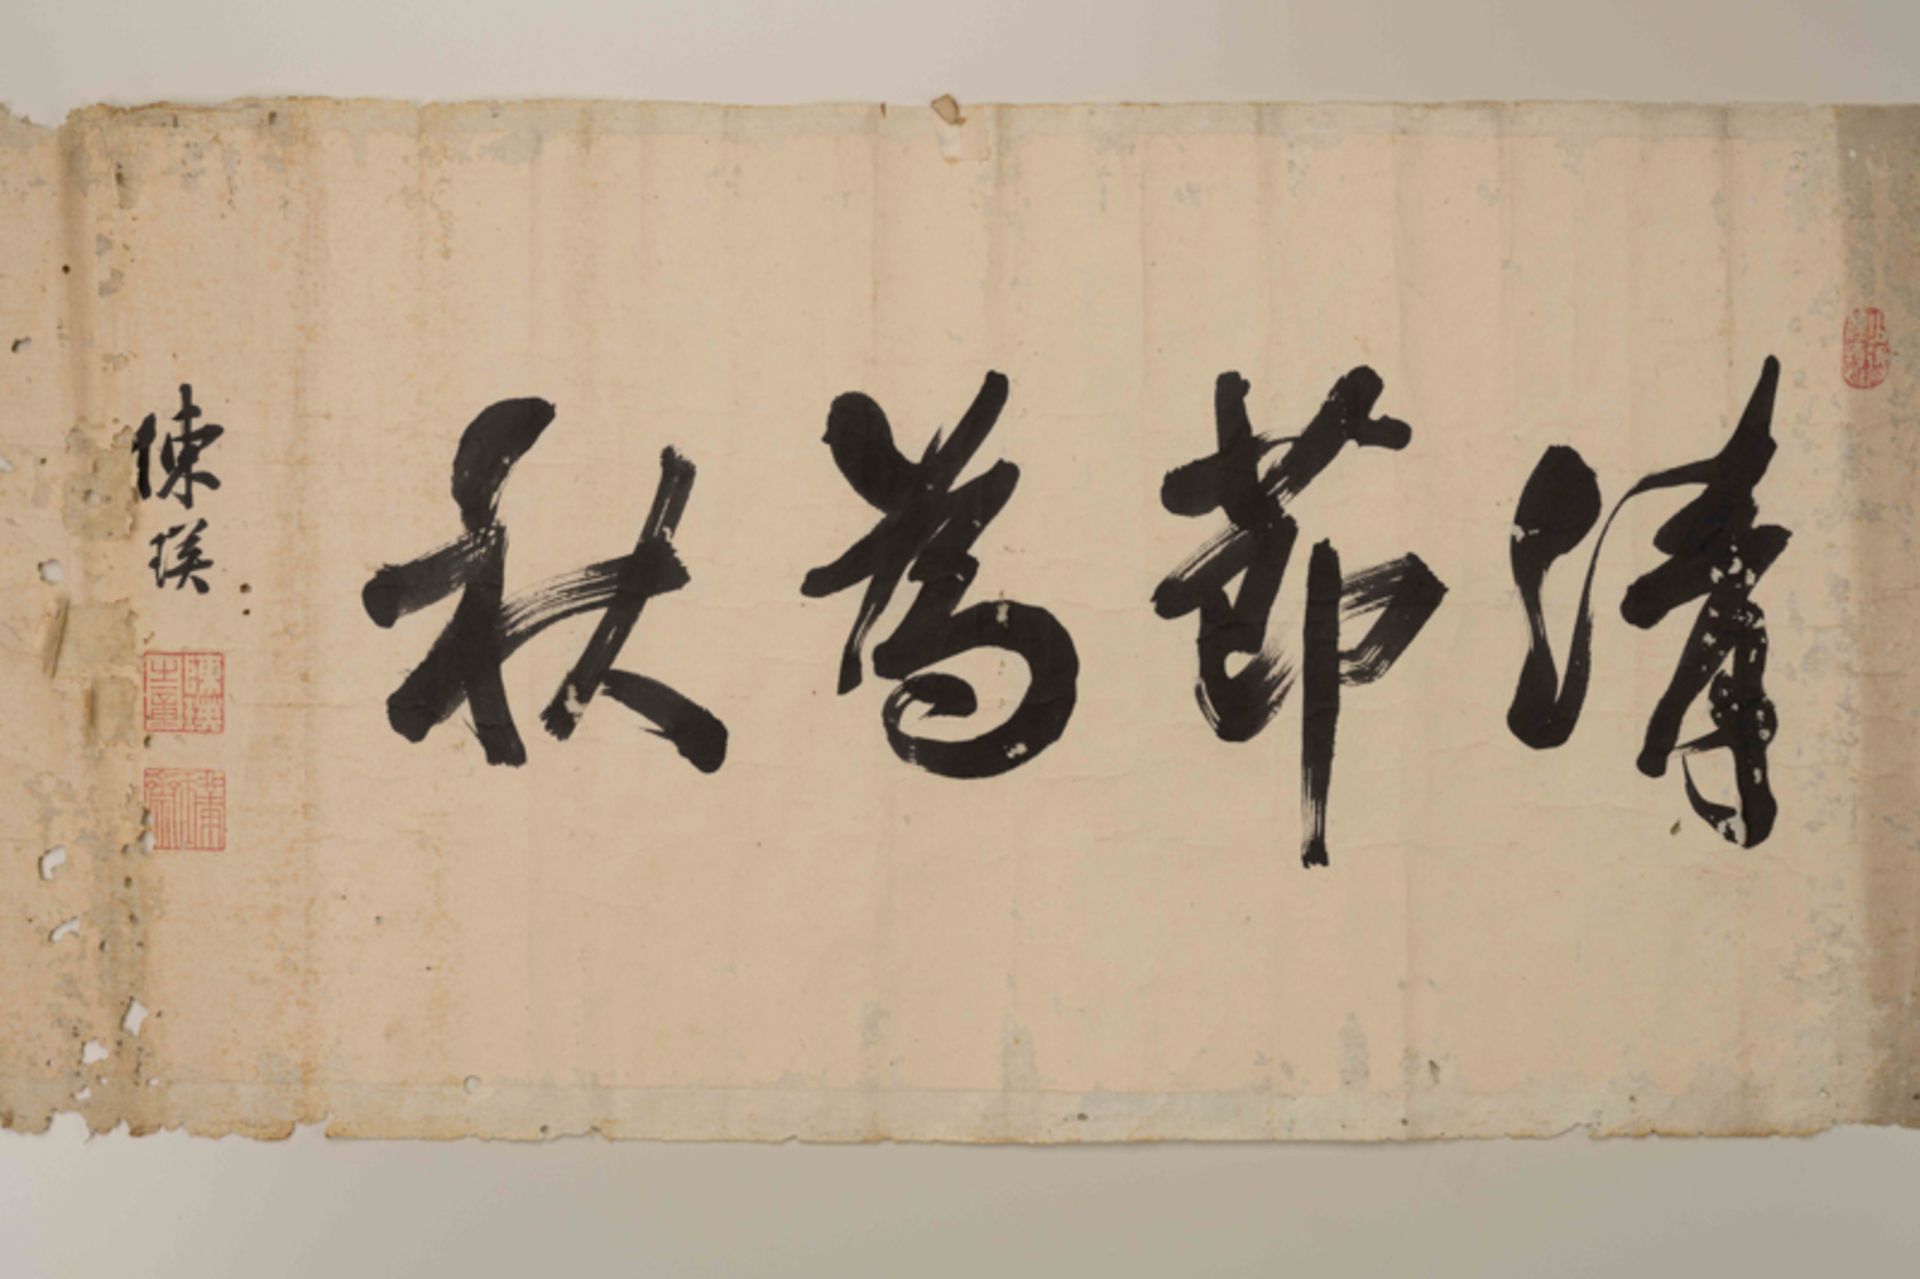 清節為秋
陳瑛